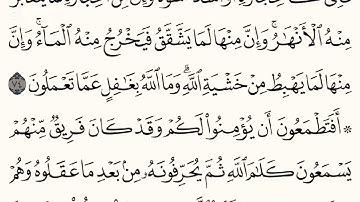 مِنْهُ ٱلْأَنْهَٰرُ ۚ وَإِنَّ مِنْهَا لَمَا يَشَّقَّقُ فَيَخْرُجُ مِنْهُ ٱلْمَآءُ ۚ وَإِنَّ
مِنْهَا لَمَا يَهْبِطُ مِنْ خَشْيَةِ ٱللَّهِ ۗ وَمَا ٱللَّهُ بِغَٰفِلٍ عَمَّا تَعْمَلُونَ ٧٤
۞ أَفَتَطْمَعُونَ أَن يُؤْمِنُوا۟ لَكُمْ وَقَدْ كَانَ فَرِيقٌ مِّنْهُمْ
يَسْمَعُونَ كَلَٰمَ ٱللَّهِ ثُمَّ يُحَرِّفُونَهُۥ مِنۢ بَعْدِ مَا عَقَلُوهُ وَهُمْ